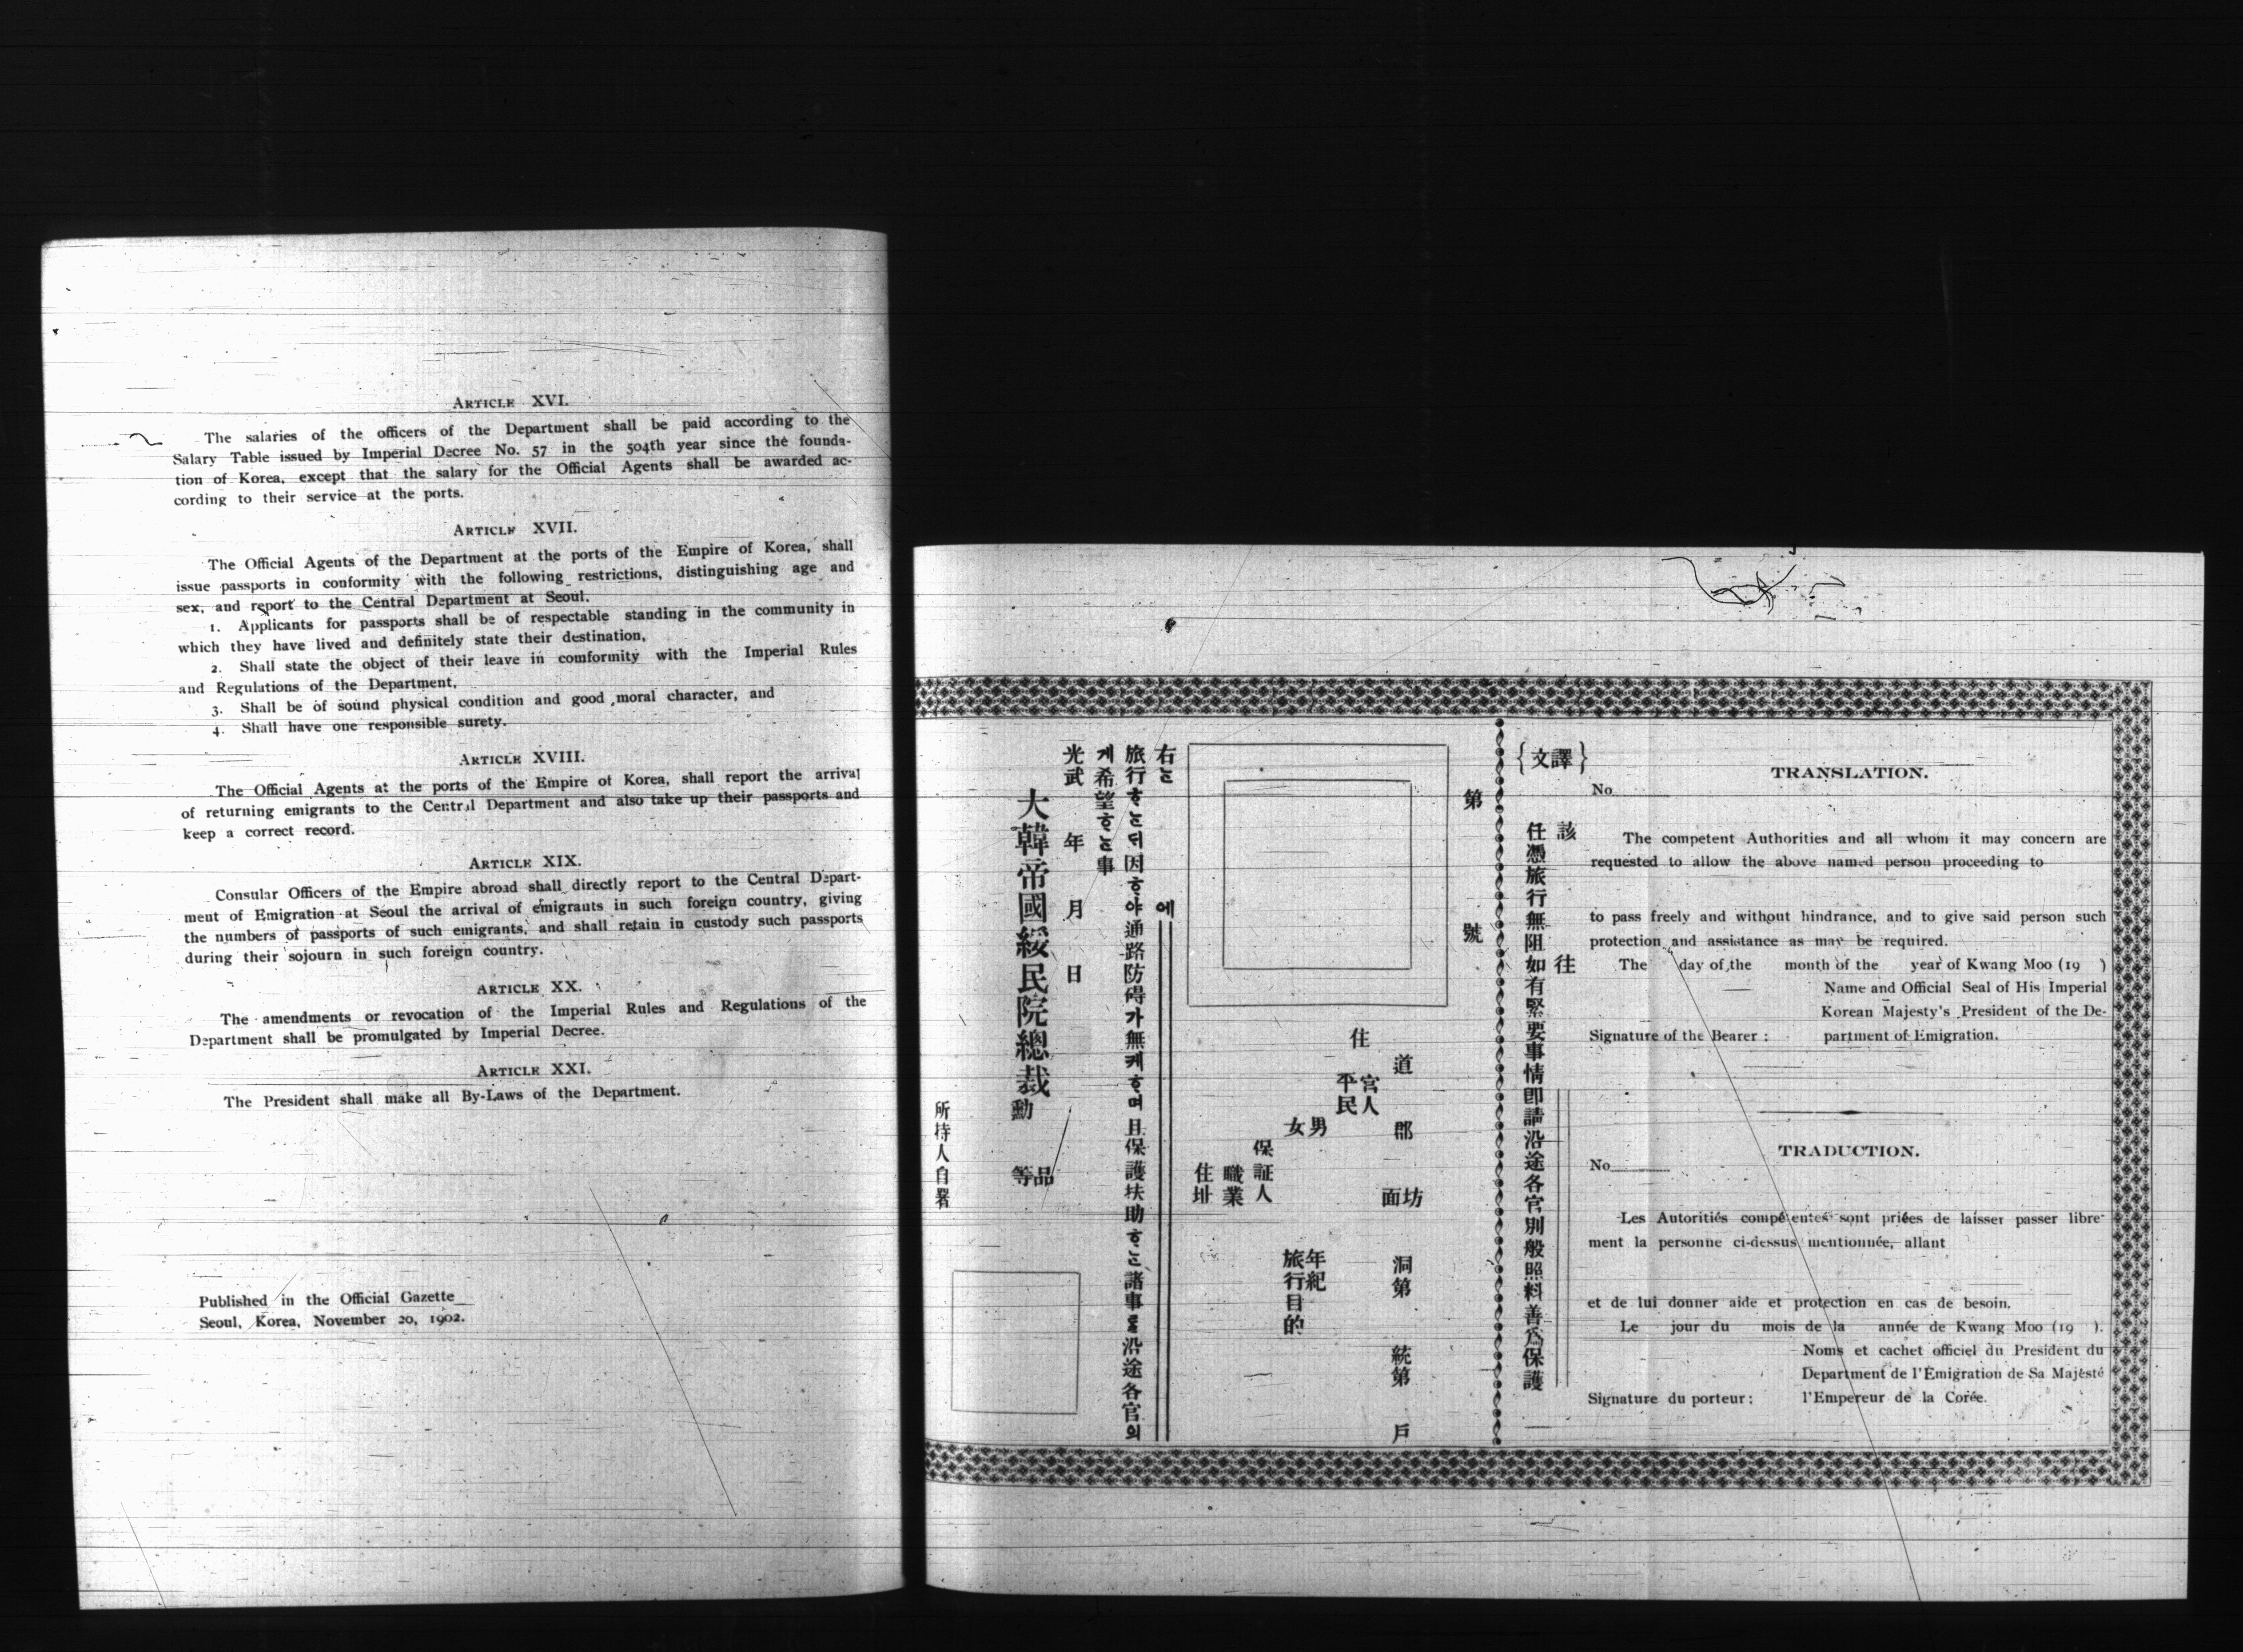 ARTICLE XVI.
The salaries of the officers of the Department shall be paid according to the
Salary Table issued by Imperial Decree No. 57 in the 504th year since the founda-
tion of Korea, except that the salary for the Official Agents shall be awarded ac-
cording to their service at the ports.
ARTICLE XVII.
The Official Agents of the Department at the ports of the Empire of Korea, shall
issue passports in conformity with the following restrictions, distinguishing age and
sex, and report to the Central Department at Seoul.
1. Applicants for passports shall be of respectable standing in the community in
which they have lived and definitely state their destination,
2. Shall state the object of their leave in comformity with the Imperial Rules
and Regulations of the Department,
3. Shall be of sound physical condition and good moral character, and
4. Shall have one responsible surety.
ARTICLE XVIII.
The Official Agents at the ports of the Empire of Korea, shall report the arrival
of returning emigrants to the Central Department and also take up their passports and
keep a correct record.
ARTICLE XIX.
Consular Officers of the Empire abroad shall directly report to the Central Depart-
ment of Emigration at Seoul the arrival of emigrants in such foreign country, giving
the numbers of passports of such emigrants, and shall retain in custody such passports
during their sojourn in such foreign country.
ARTICLE XX.
The amendments or revocation of the Imperial Rules and Regulations of the
Department shall be promulgated by Imperial Decree.
ARTICLE XXI.
The President shall make all By-Laws of the Department.
Published in the Official Gazette
Seoul, Korea, November 20, 1902.
TRANSLATION.
No
The competent Authorities and all whom it may concern are
requested to allow the above named person proceeding to
to pass freely and without hindrance, and to give said person such
protection and assistance as may be required.
The day of the month of the year of Kwang Moo (19 )
Name and Official Seal of His Imperial
Korean Majesty's President of the De-
Signature of the Bearer : partment of Emigration.
TRADUCTION.
No
Les Autoritiés compétentes sont priées de laisser passer libre-
ment la personne ci-dessus mentionnée, allant
et de lui donner aide et protection en cas de besoin.
Le jour du mois de la année de Kwang Moo (19 ).
Noms et cachet officiel du President du
Department de l'Émigration de Sa Majésté
Signature du porteur : l'Empereur de la Corée.
{譯文}
該 往
任憑旅行無阻如有緊要事情卽請沿途各官別般照料善爲保護
第 號
住 道 郡 坊面 洞第 統第 戶
官人
平民
男女
年紀
旅行目的
保証人
職業
住址
右는 에
旅行ᄒᆞ는ᄃᆡ因ᄒᆞ야通路防碍가無케ᄒᆞ며且保護扶助ᄒᆞ는諸事를沿途各官의
게希望ᄒᆞ는事
光武 年 月 日
大韓帝國綏民院總裁
勳 等品
所持人自署